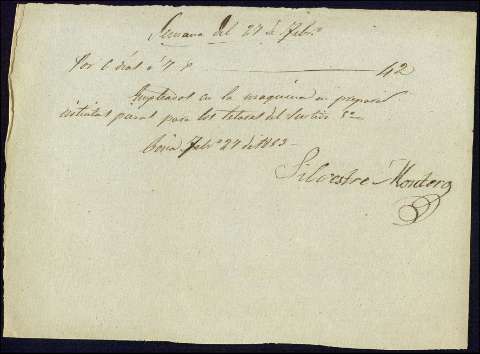 Semana del 27 de Febro
Por 6 dias á 7 r 42
Empleados en la maquina en preparar
distintas para los telares del Surtido
Febo 27 de 1883
Silvestre Montero